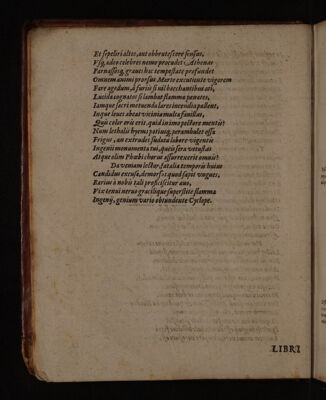 Et sepeliri altos, aut obbrutescere sensus,
Vsq, adeo celebres nemo procudet Athenæ
Parnassosq, graues hac tempestate profundet
Omnem animi prorsus Marte excutiente vigorem
Fare agedum, à furijs si nil bacchantibus oti,
Lucida cognatos si lambat flamma penates,
Iamque sacri metuenda lares incendia pallent,
Inque leues abeat vicinia multa fauillas,
Quis color oris erit, quid in imo pectore mentis?
Num lethalis hyems patiuq, perambulet ossa
Frigus, an extrudes sudata labore vigentis
Ingenij monumenta tui, queis sera vetustas
Atque olim Phœbi chorus assurrexerit omnis?
Da veniam lector, fatalia temporis huius
Candidus excuses, demorsos quod sapit vngues,
Rarius à nobis tali proficiscitur auo,
Vix tenui neruo gracilique superstite flamma
Ingenij, genium vario obtundente Cyclope.
LIBRI